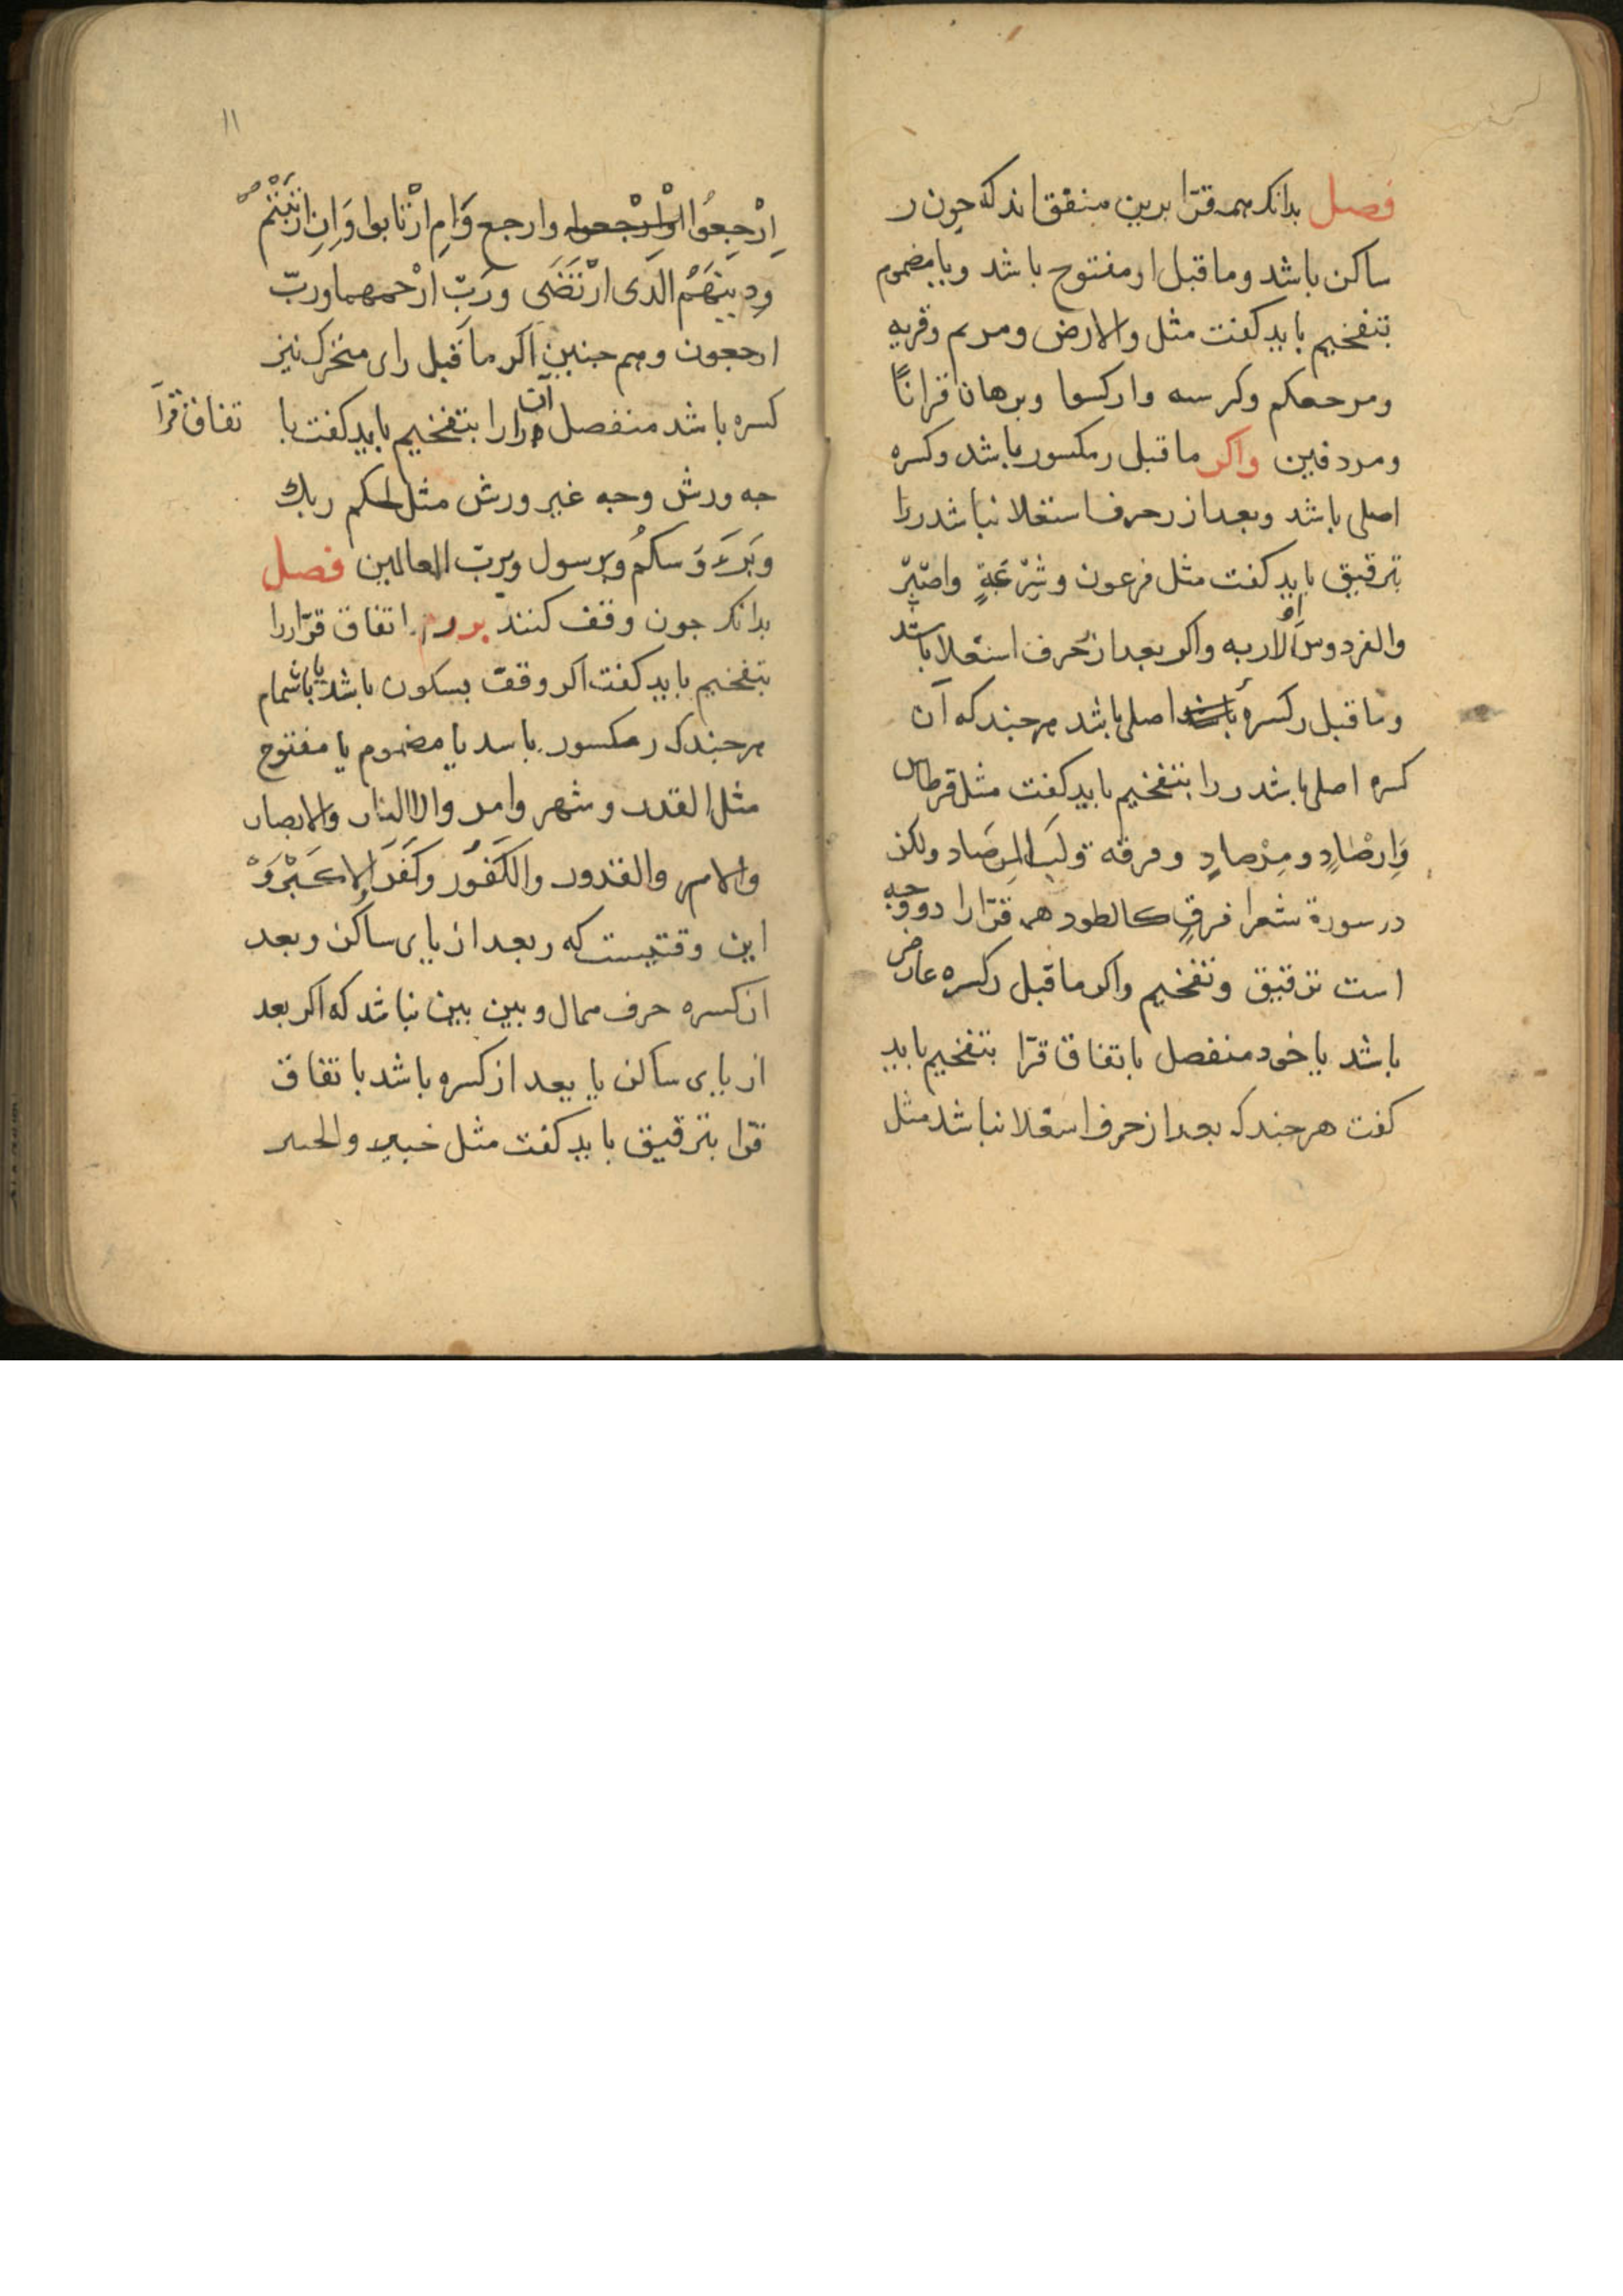 فصل بدانکه همه قرّا برین متفق اند که چون ر
ساکن باشد وما قبل او مفتوح باشد ویا مضموم
بتفخیم باید کفت مثل والارض ومریم وقریه
ومرجعکم وکرسیه وارکسوا وبرهان قرانًا
ومردفین واکر ما قبل ر مکسور باشد وکسره
اصلی باشد وبعد از ر حرف استعلا نباشد ررا
بترقیق باید کفت مثل فرعون وشِرْعَةٍ واصْبِرْ
والفردوس أو الاربه واکر بعد از ر حرف استعلا باشد
وما قبل ر کسرهٔ اصلی باشد هر جند که آن
کسره اصلی باشد ررا بتفخیم باید کفت مثل قرطاس
وَاِرْصَادٍ ومِرْصادٍ وفرقه ولَبِالمِرصَاد ولکن
در سورة شعرا فرقٍ کالطود همه قرّا را دو وجه
است ترقیق وتفخیم واکر ما قبل ر کسره عارض
باشد یا خود منفصل باتفاق قرّا بتفخیم باید
کفت هر جندکه بعد از حرف استعلا نباشد مثل
۱۱
اِرْجِعُوا وارجع وَاَمِ ارْتابوا وَاِنِ ارْتَبْتُمْ
ودینَهُمُ الَّذی ارْتَضَی ورَبّ ارْحمهما وربّ
ارجعون وهم جنین اکر ما قبل رای متحرک نیز
کسره باشد منفصل آن را را بتفخیم باید کفت با تفاق قرّا
جه ورش وجه غیر ورش مثل لحکم ربك
وبَرَءُوسکُم وبرسول وبربّ العالمین فصل
بدانکه جون وقف کنند بر ر اتفاق قرّا ررا
بتفخیم باید کفت اکر وقف بسکون باشد یا باشمام
هر جندکه ر مکسور باشد یا مضموم یا مفتوح
مثل القدر وشهر وامر والنار والابصار
والامر والقدور والکَفُور وکَفَرَ
این وقتیست که ر بعد از یای ساکن وبعد
از کسره حرف ممال وبین بین نباشد که اکر بعد
از یای ساکن یا بعد از کسره باشد با تفاق
قرّا بترقیق باید کفت مثل خبیر والخیر